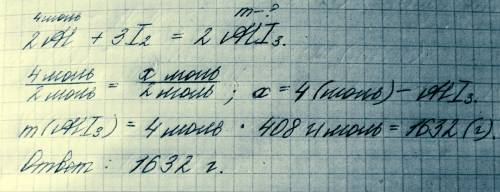 4 моль m-?
2Al + 3I₂ = 2AlI₃.
4 моль / 2 моль = x моль / 2 моль ; x = 4 (моль) - AlI₃.
m(AlI₃) = 4 моль · 408 г/моль = 1632 (г).
Ответ : 1632 г.